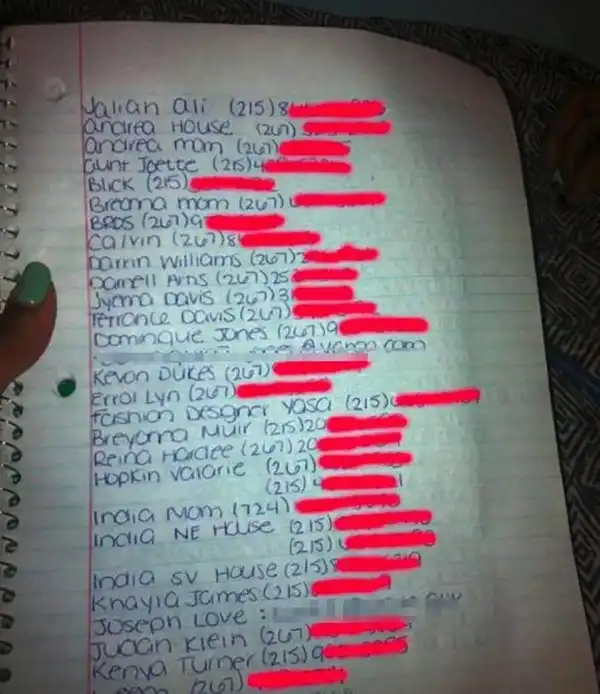 Jalian Ali (215)8
Andrea House (267)
Andrea mom (267)
Aunt Joette (215)4
Blick (215)
Breanna mom (267)
BROS (267)9
Calvin (267)8
Darrin Williams (267)2
Darnell Arns (267)25
Jyenna Davis (267)3
Terrance Davis (267)
Dominique Jones (267)9
@yahoo.com
Kevon Dukes (267)
Errol Lyn (267)
Fashion Designer Yasa (215)6
Breyanna Muir (215)20
Reina Hardee (267)20
Hopkin Valorie (267)
(215) 4
India Mom (724)
India NE House (215)
(215)
India SV House (215)8
Khayla James (215)
Joseph Love :
Judan Klein (267)
Kenya Turner (215)9
(267)